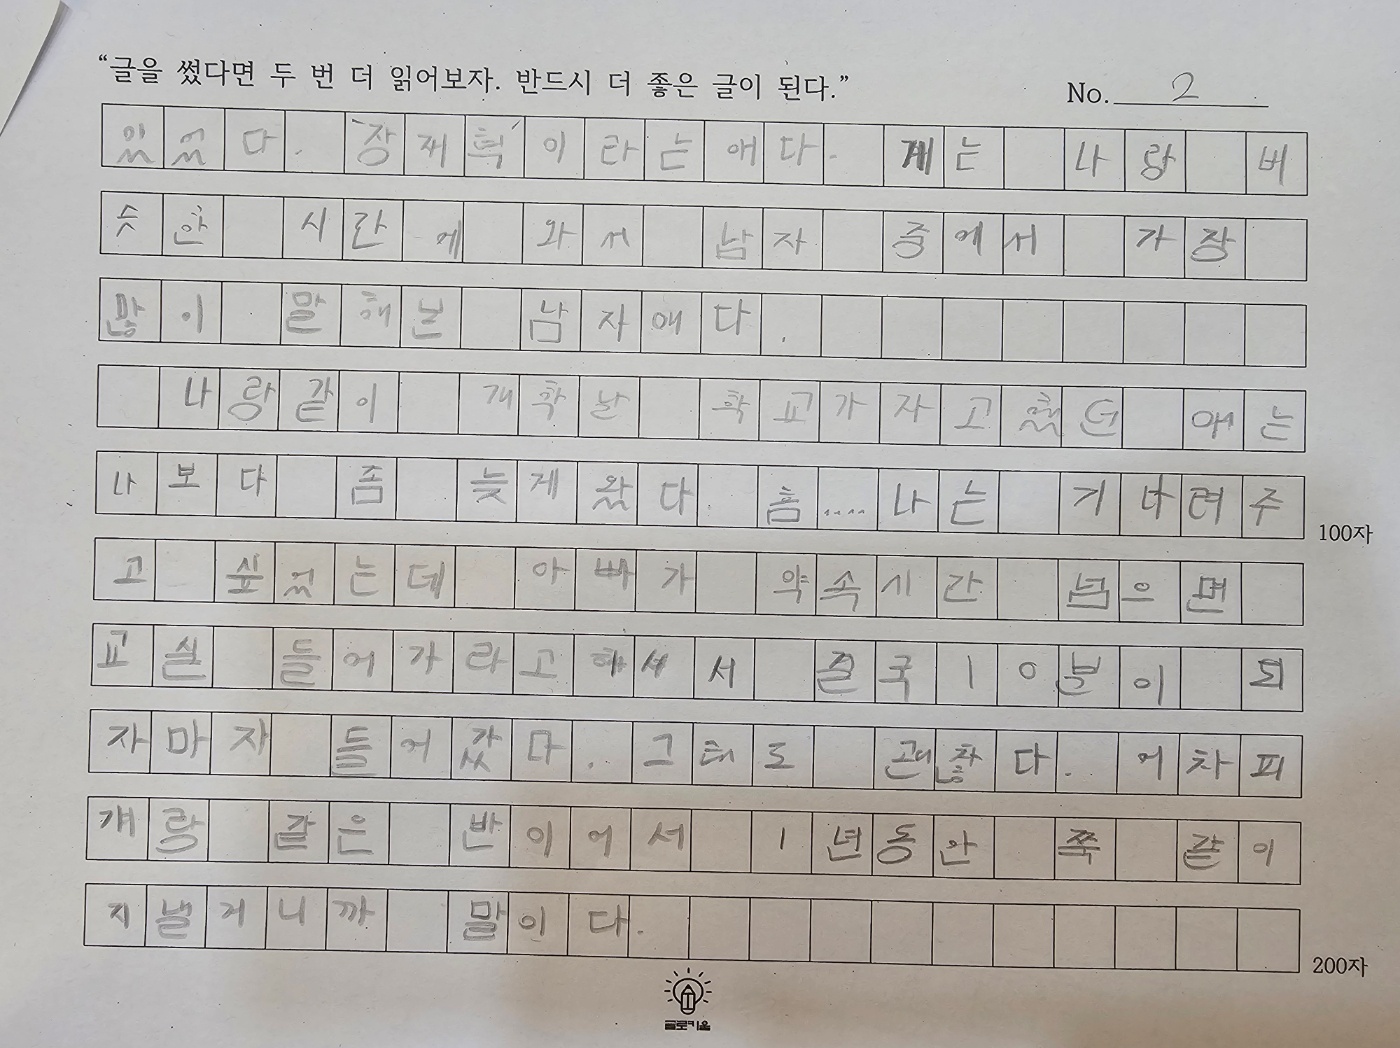 “글을 썼다면 두 번 더 읽어보자. 반드시 더 좋은 글이 된다.” No. 2
있었다. '장재혁'이라는애다. 걔는 나랑 버
슷한 시간에 와서 남자 중에서 가장
많이 말해본 남자애다.
나랑같이 개학날 학교가자고했던 애는
나보다 좀 늦게 왔다. 흠....나는 기다려주
고 싶었는데 아빠가 약속시간 넘으면
교실 들어가라고해셔서 결국10분이 되
자마자 들어갔다. 그래도 괜찮다. 어차피
걔랑 같은 반이어서 1년동안 쭉 같이
지낼거니까 말이다.
100자
200자
글로키움